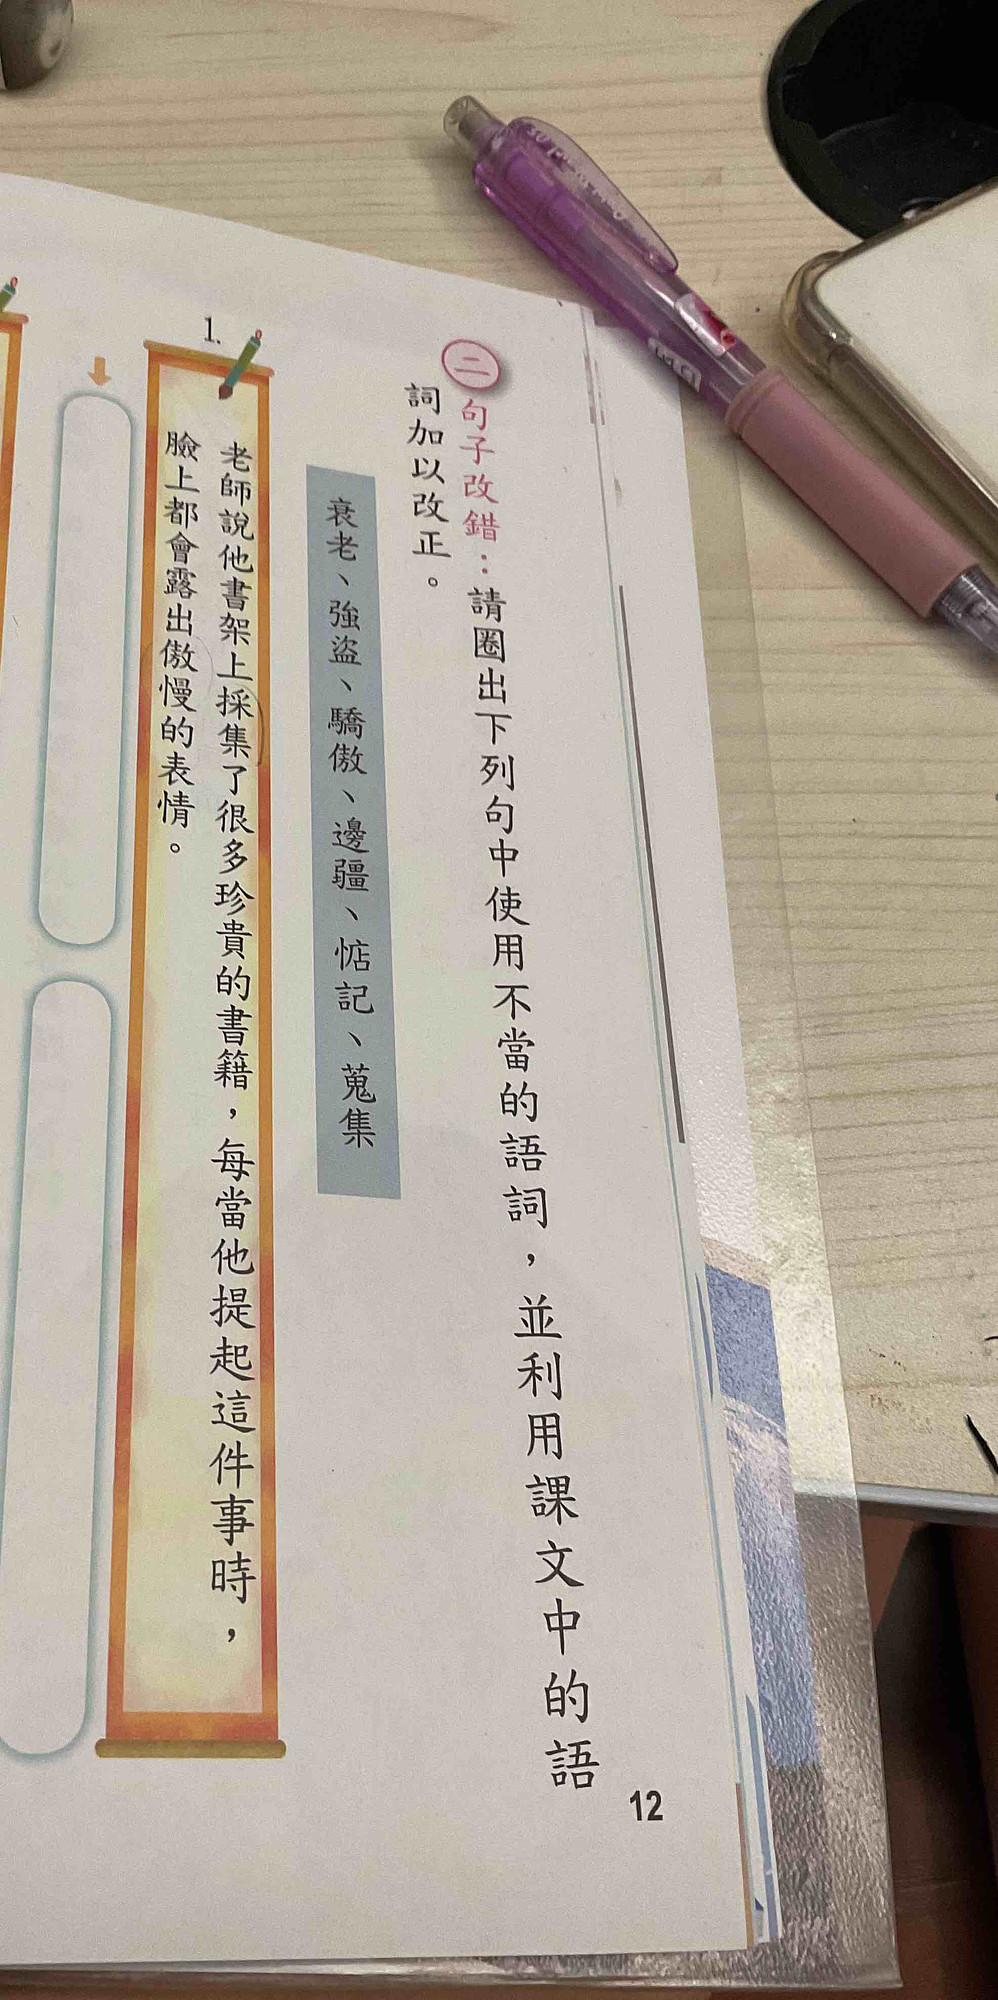 二 句子改錯：請圈出下列句中使用不當的語詞，並利用課文中的語
詞加以改正。
衰老、強盜、驕傲、邊疆、惦記、蒐集
1.
老師說他書架上採集了很多珍貴的書籍，每當他提起這件事時，
臉上都會露出傲慢的表情。
12